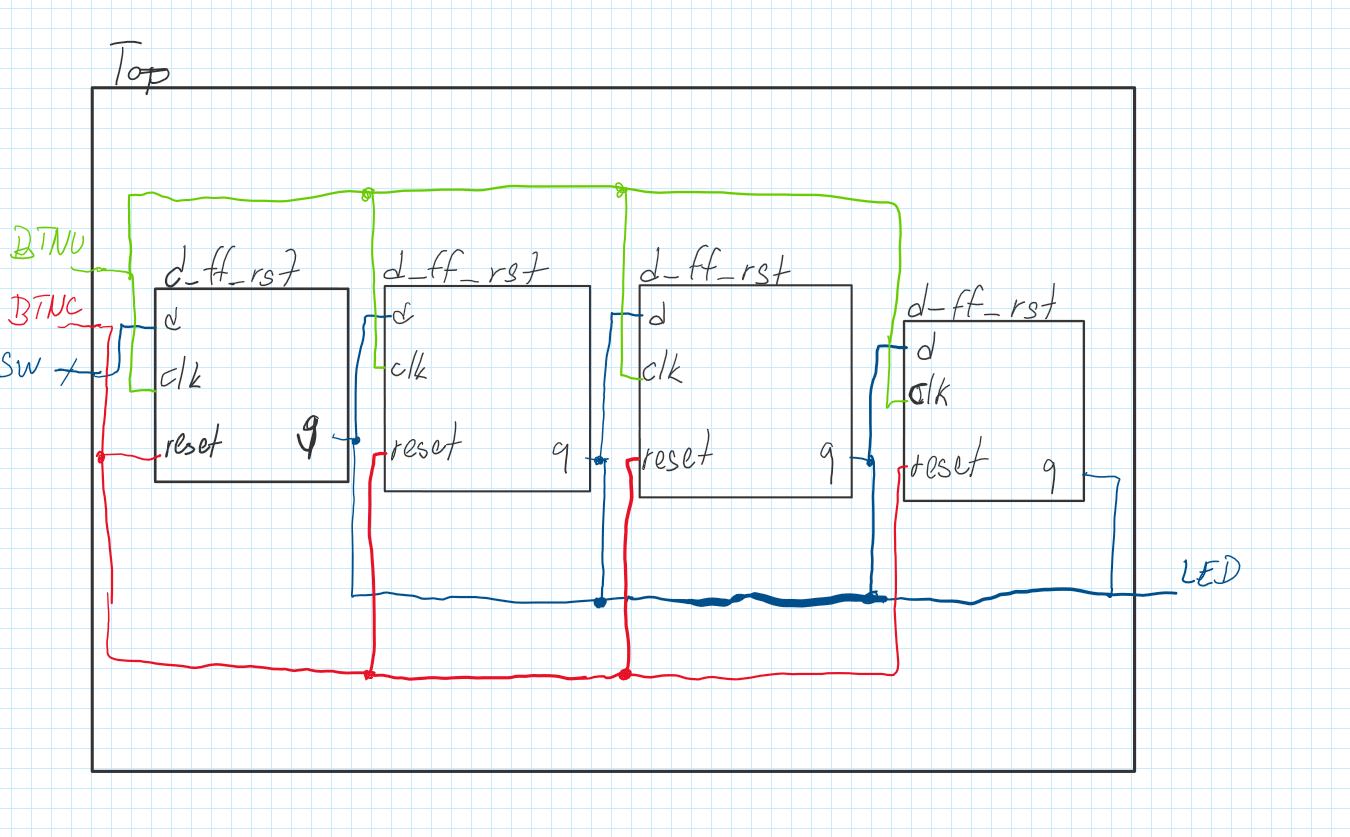 Top
BTNU
BTNC
SW
d_ff_rst
d
clk
reset
q
d_ff_rst
d
clk
reset
q
d_ff_rst
d
clk
reset
q
d_ff_rst
d
clk
reset
q
LED